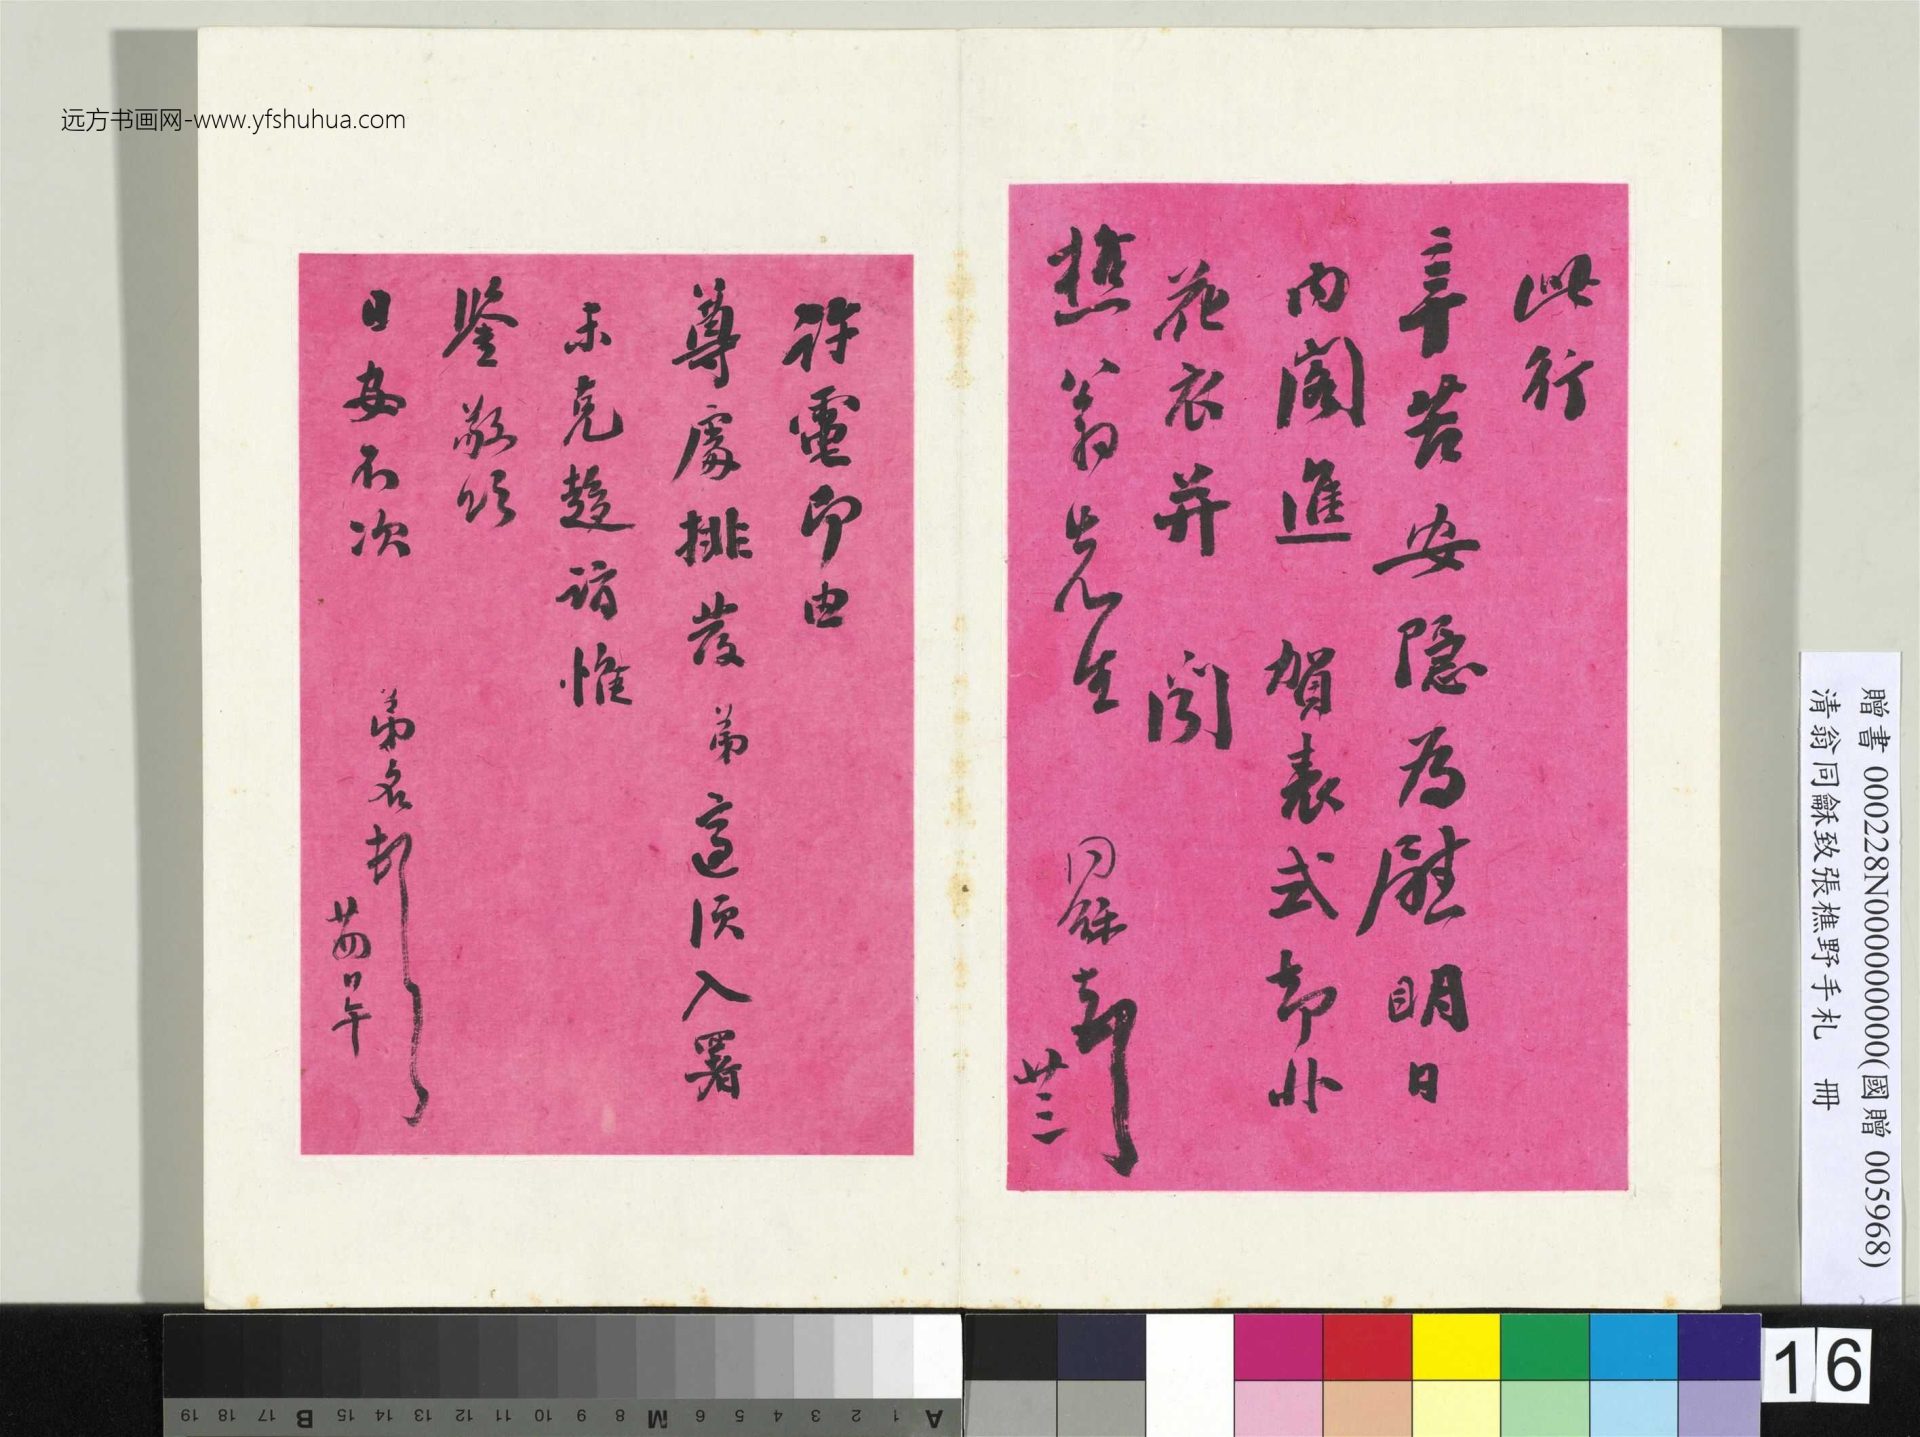 远方书画网-www.yfshuhua.com
此行
辛苦安隱為慰明日
內閣進賀表式帶
花衣并聞
樵翁先生 同龢 廿三
許電即由
尊處排發弟適須入署
未克趨訪惟
鑒敬頌
日安不次
弟名 廿四日午
贈書 000228N000000000(國贈 005968)
清翁同龢致張樵野手札 冊
16
A 1 2 3 4 5 6 M 8 9 10 11 12 13 14 15 B 17 18 19